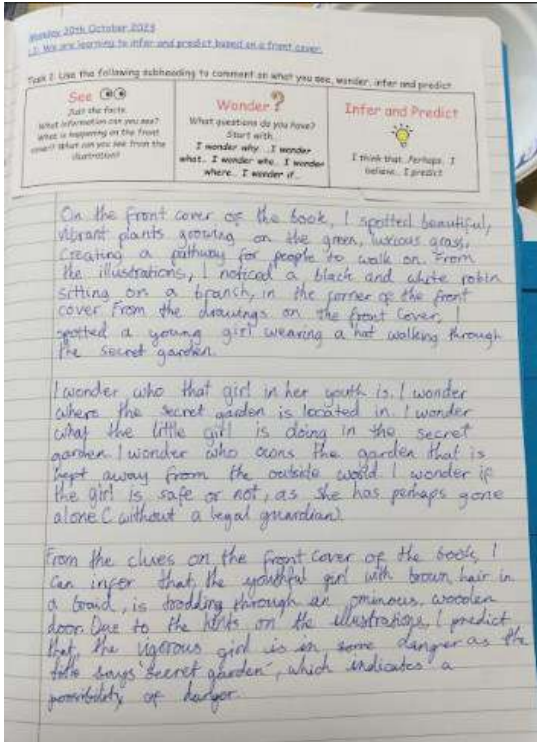 Monday 20th October 2023
L.I: We are learning to infer and predict based on a front cover.
Task 1: Use the following subheading to comment on what you see, wonder, infer and predict
See
Just the facts.
What information can you see?
What is happening on the front
cover? What can you see from the
illustration?
Wonder?
What questions do you have?
Start with...
I wonder why.. I wonder
what.. I wonder who.. I wonder
where.. I wonder if..
Infer and Predict
I think that.. Perhaps.. I
believe.. I predict
On the front cover of the book, I spotted beautiful,
vibrant plants growing on the green, luxious grass,
creating a pathway for people to walk on. From
the illustrations, I noticed a black and white robin
sitting on a branch, in the corner of the front
cover. From the drawings on the front cover, I
spotted a young girl wearing a hat walking through
the secret garden.
I wonder who that girl in her youth is. I wonder
where the secret garden is located in. I wonder
what the little girl is doing in the secret
garden. I wonder who owns the garden that is
kept away from the outside world. I wonder if
the girl is safe or not, as she has perhaps gone
alone (without a legal guardian).
From the clues on the front cover of the book, I
can infer that, the youthful girl with brown hair in
a braid, is trodding through an ominous, wooden
door. Due to the hints on the illustrations, I predict
that, the vigorous girl is in some danger as the
title says 'secret garden', which indicates a
possibility of danger.